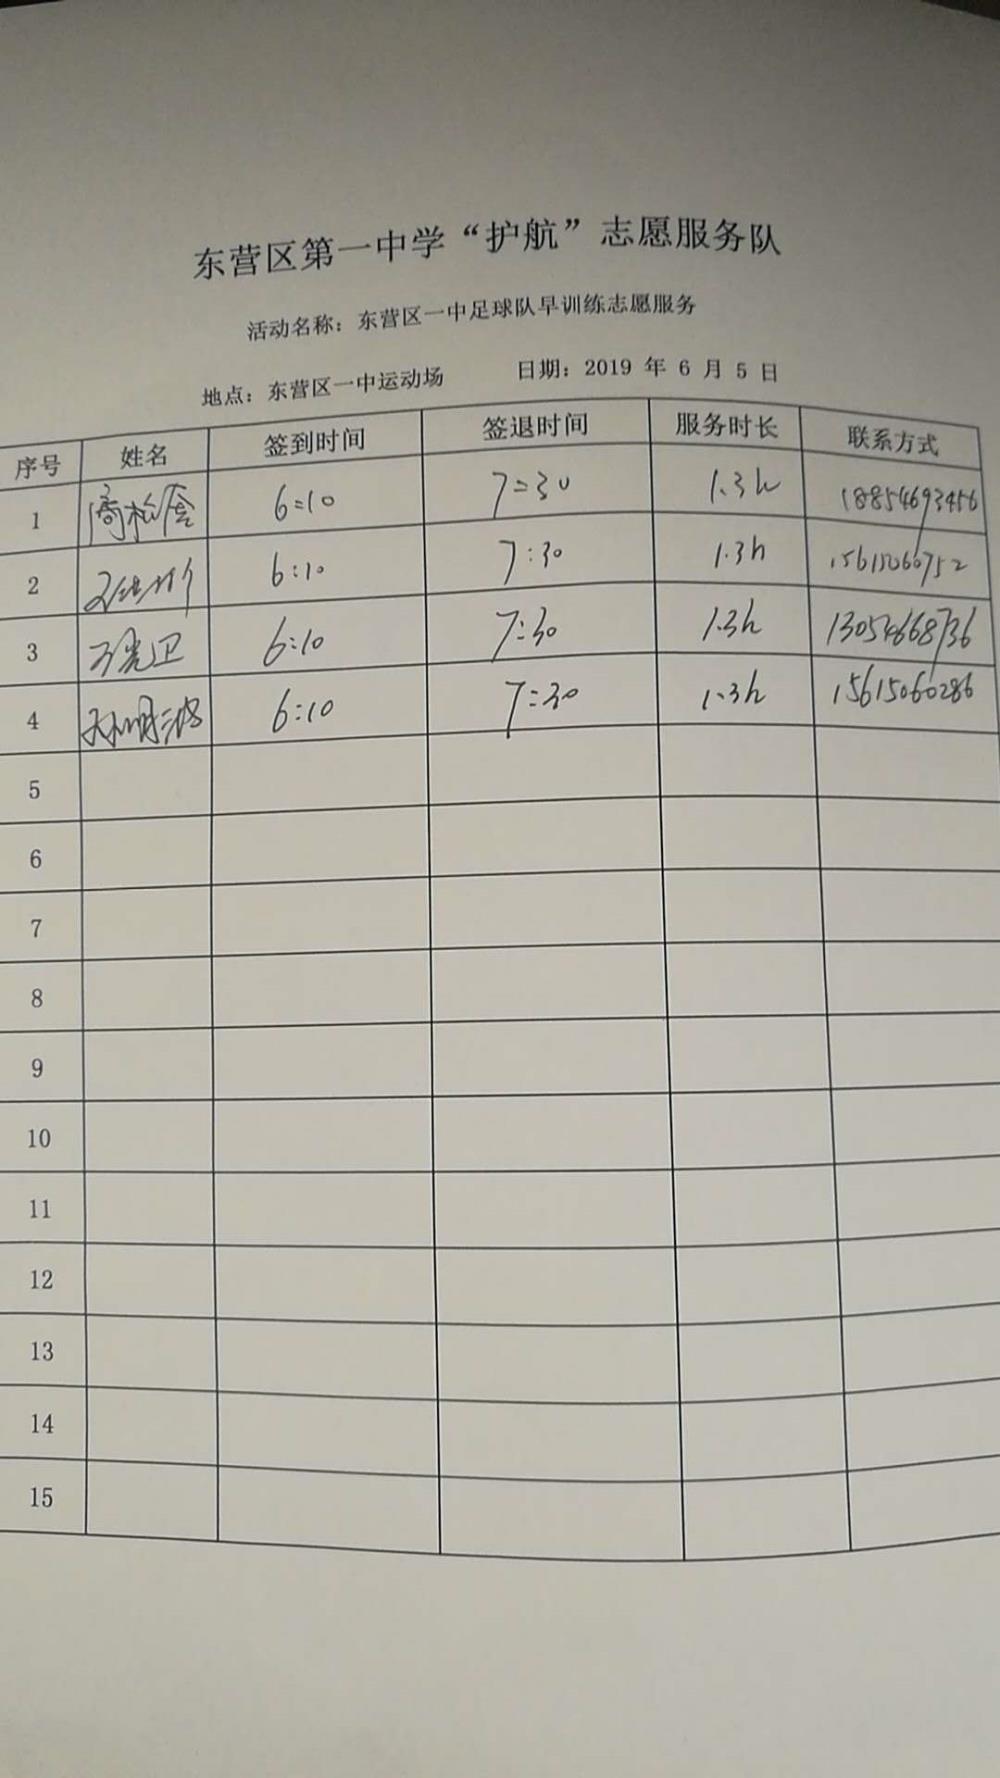 东营区第一中学“护航”志愿服务队
活动名称：东营区一中足球队早训练志愿服务
地点：东营区一中运动场 日期：2019 年 6 月 5 日
序号 姓名 签到时间 签退时间 服务时长 联系方式
1 6:10 7:30 1.3h 18854693456
2 6:10 7:30 1.3h 15615060752
3 6:10 7:30 1.3h 13054668736
4 6:10 7:30 1.3h 15615060286
5
6
7
8
9
10
11
12
13
14
15